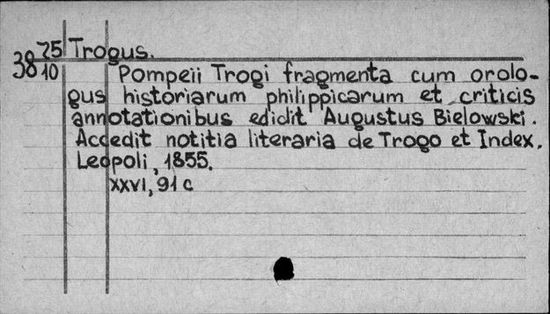 38 25/10 Trogus.
Pompeii Trogi fragmenta cum orolo-
gus historiarum philippicarum et criticis
annotationibus edidit Augustus Bielowski.
Accedit notitia literaria de Trogo et Index.
Leopoli, 1855.
XXVI, 91 c